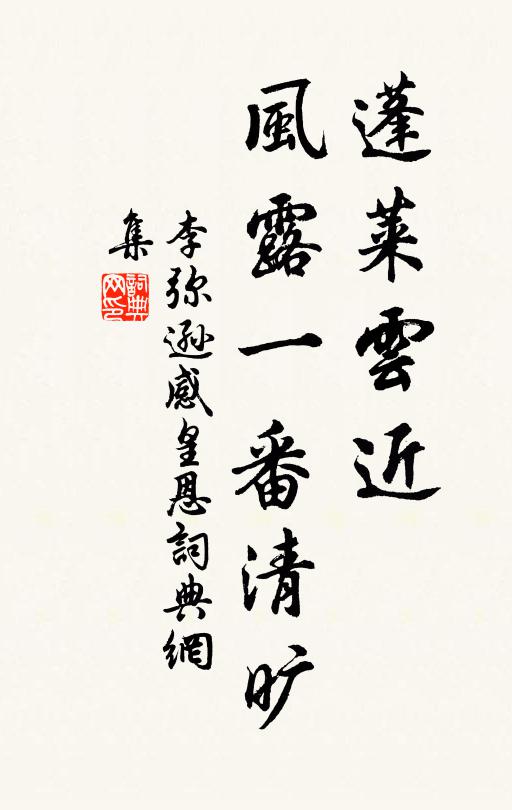 蓬萊雲近
風露一番清旷
李弥遜感皇恩詞典網
集
詞典
网印